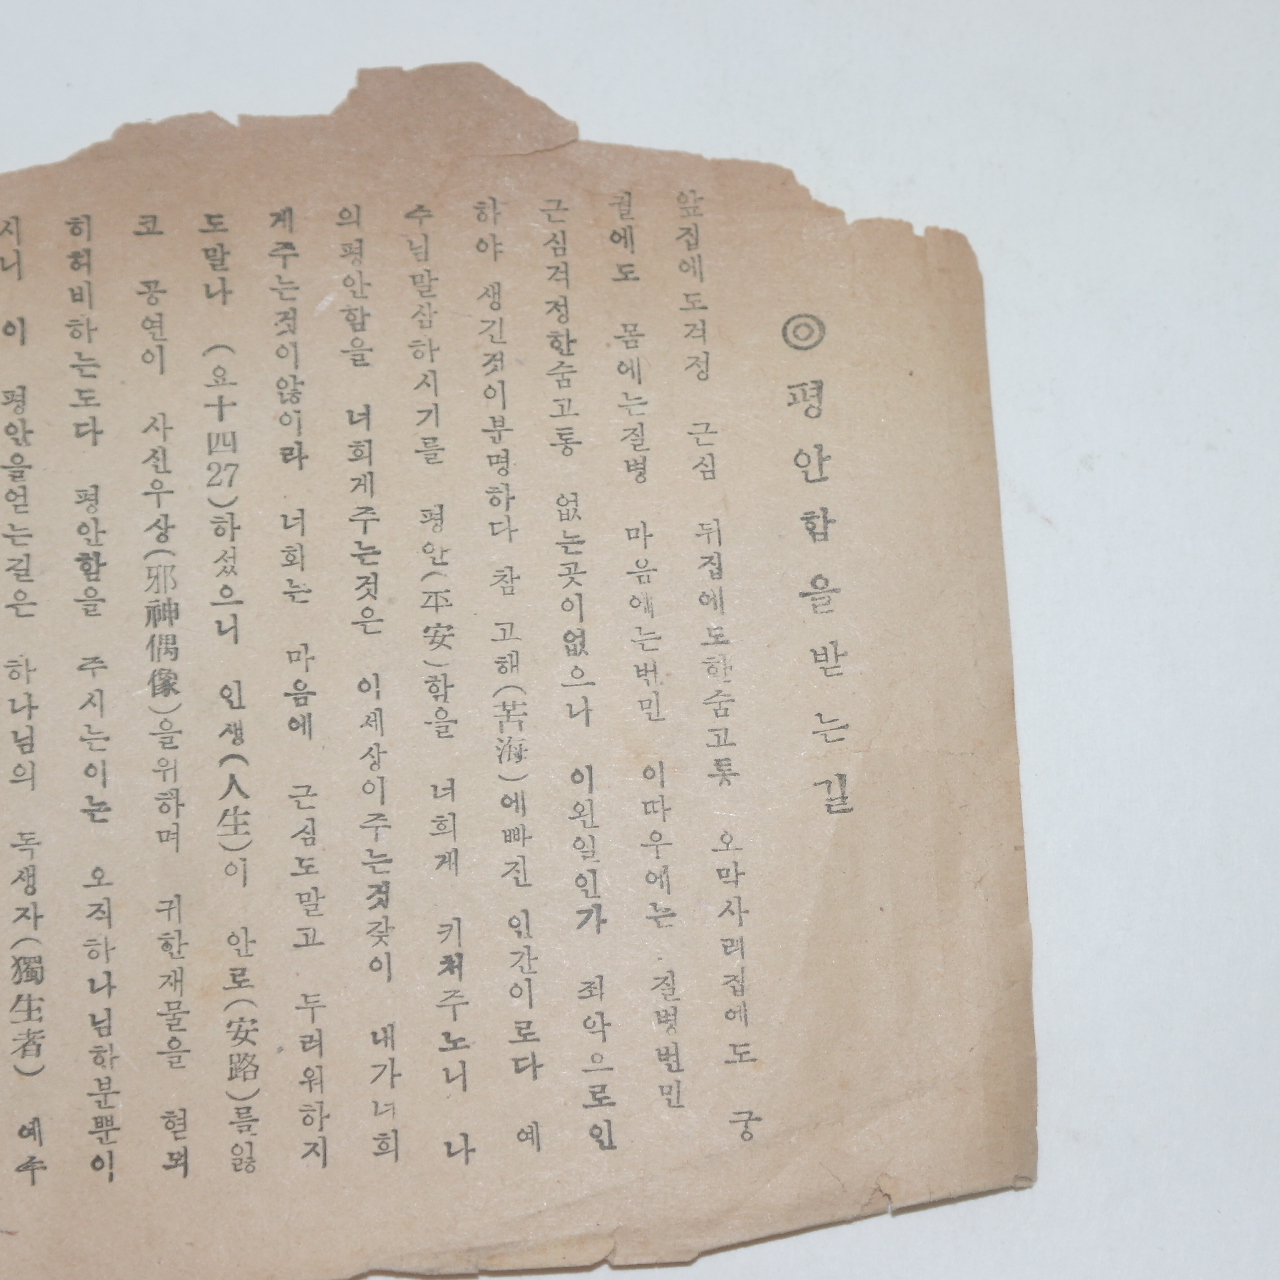 ◎평안함을받는길
앞집에도걱정 근심 뒤집에도한숨고통 오막사리집에도 궁
궐에도 몸에는질병 마음에는번민 이따우에는 질병번민
근심걱정한숨고통 없는곳이없으나 이왼일인가 죄악으로인
하야 생긴것이분명하다 참 고해(苦海)에빠진 인간이로다 예
수님말삼하시기를 평안(平安)함을 너희게 키처주노니 나
의평안함을 너희게주는것은 이세상이주는것갖이 내가너희
게주는것이않이라 너희는 마음에 근심도말고 두려워하지
도말나 (요十四27)하섰으니 인생(人生)이 안로(安路)를잃
코 공연이 사신우상(邪神偶像)을위하며 귀한재물을 헏되
히허비하는도다 평안함을 주시는이는 오직하나님한분뿐이
시니 이 평안을얻는길은 하나님의 독생자(獨生者) 예수